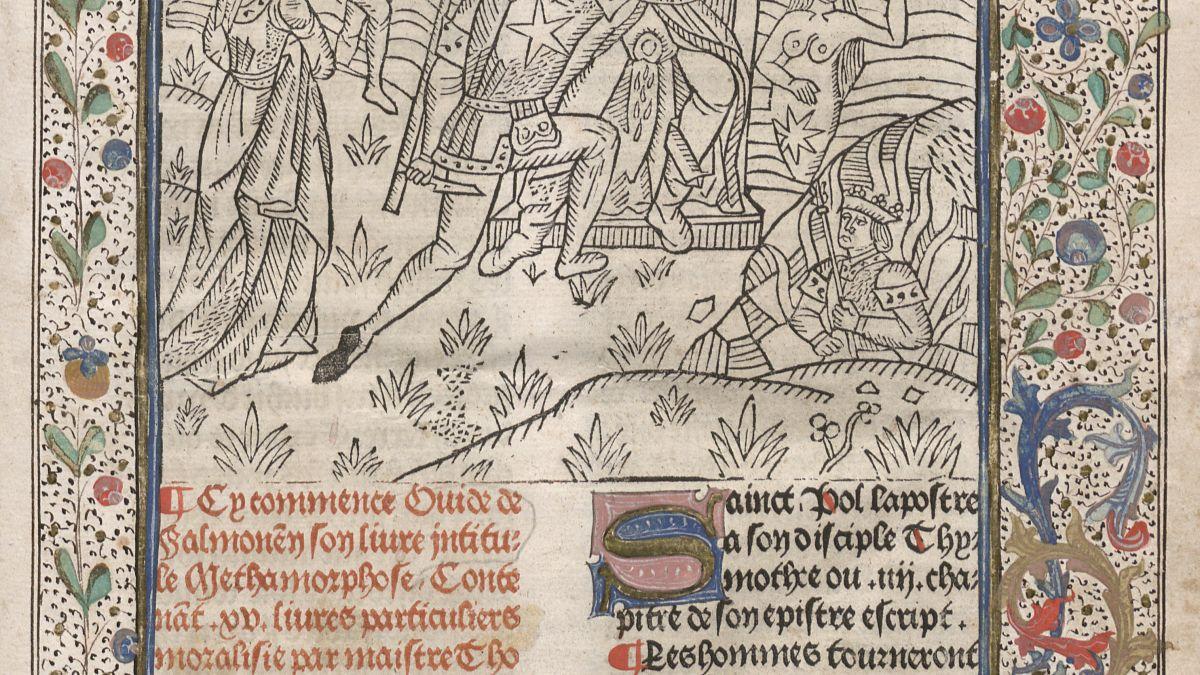 ¶ Cy commence Ouide de
Salmonēn son liure intitu-
le Methamorphose. Conte
nāt .xv. liures particuliers
moralisie par maistre Tho
Sainct. Pol lapostre
a son disciple Thy-
mothee ou .iiij. cha-
pitre de son epistre escript.
¶ Les hommes tourneront